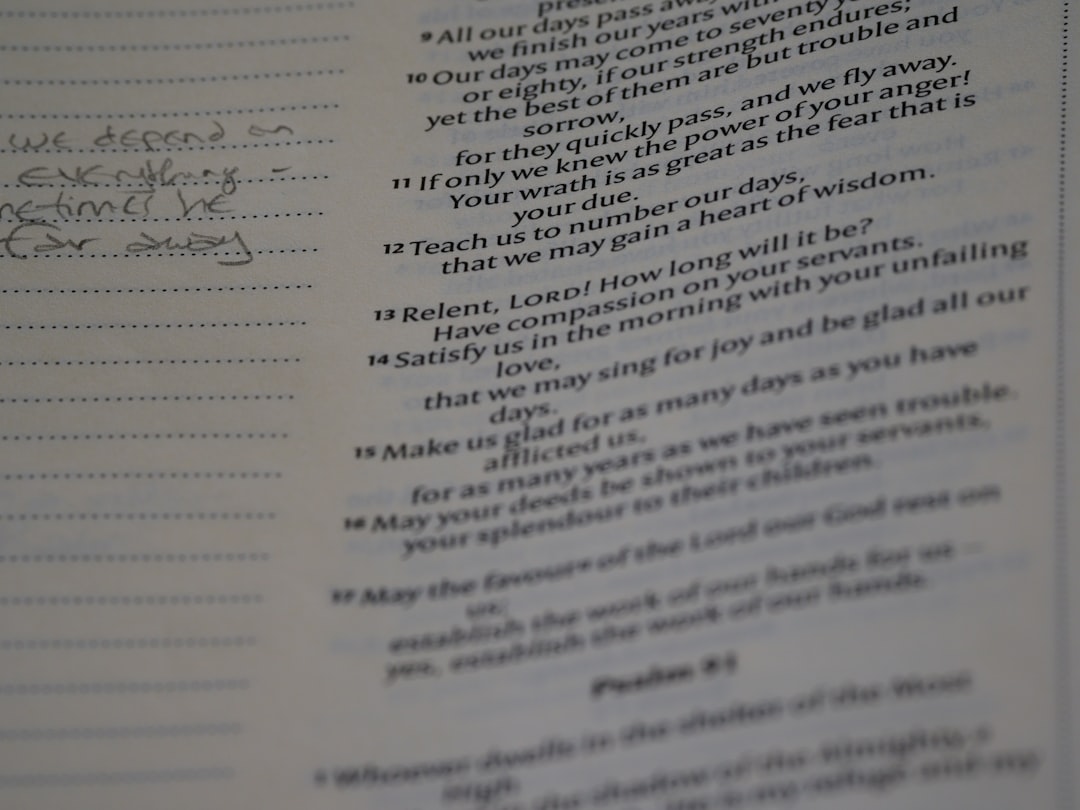 we depend on
everything -
he
far away
9 All our days pass away
we finish our years with
10 Our days may come to seventy
or eighty, if our strength endures;
yet the best of them are but trouble and
sorrow,
for they quickly pass, and we fly away.
11 If only we knew the power of your anger!
Your wrath is as great as the fear that is
your due.
12 Teach us to number our days,
that we may gain a heart of wisdom.
13 Relent, LORD! How long will it be?
Have compassion on your servants.
14 Satisfy us in the morning with your unfailing
love,
that we may sing for joy and be glad all our
days.
15 Make us glad for as many days as you have
afflicted us,
for as many years as we have seen trouble.
16 May your deeds be shown to your servants,
your splendour to their children.
17 May the favour of the Lord our God rest on
us;
establish the work of our hands for us –
yes, establish the work of our hands.
Psalm 91
1 Whoever dwells in the shelter of the Most
High
the shadow of the Almighty